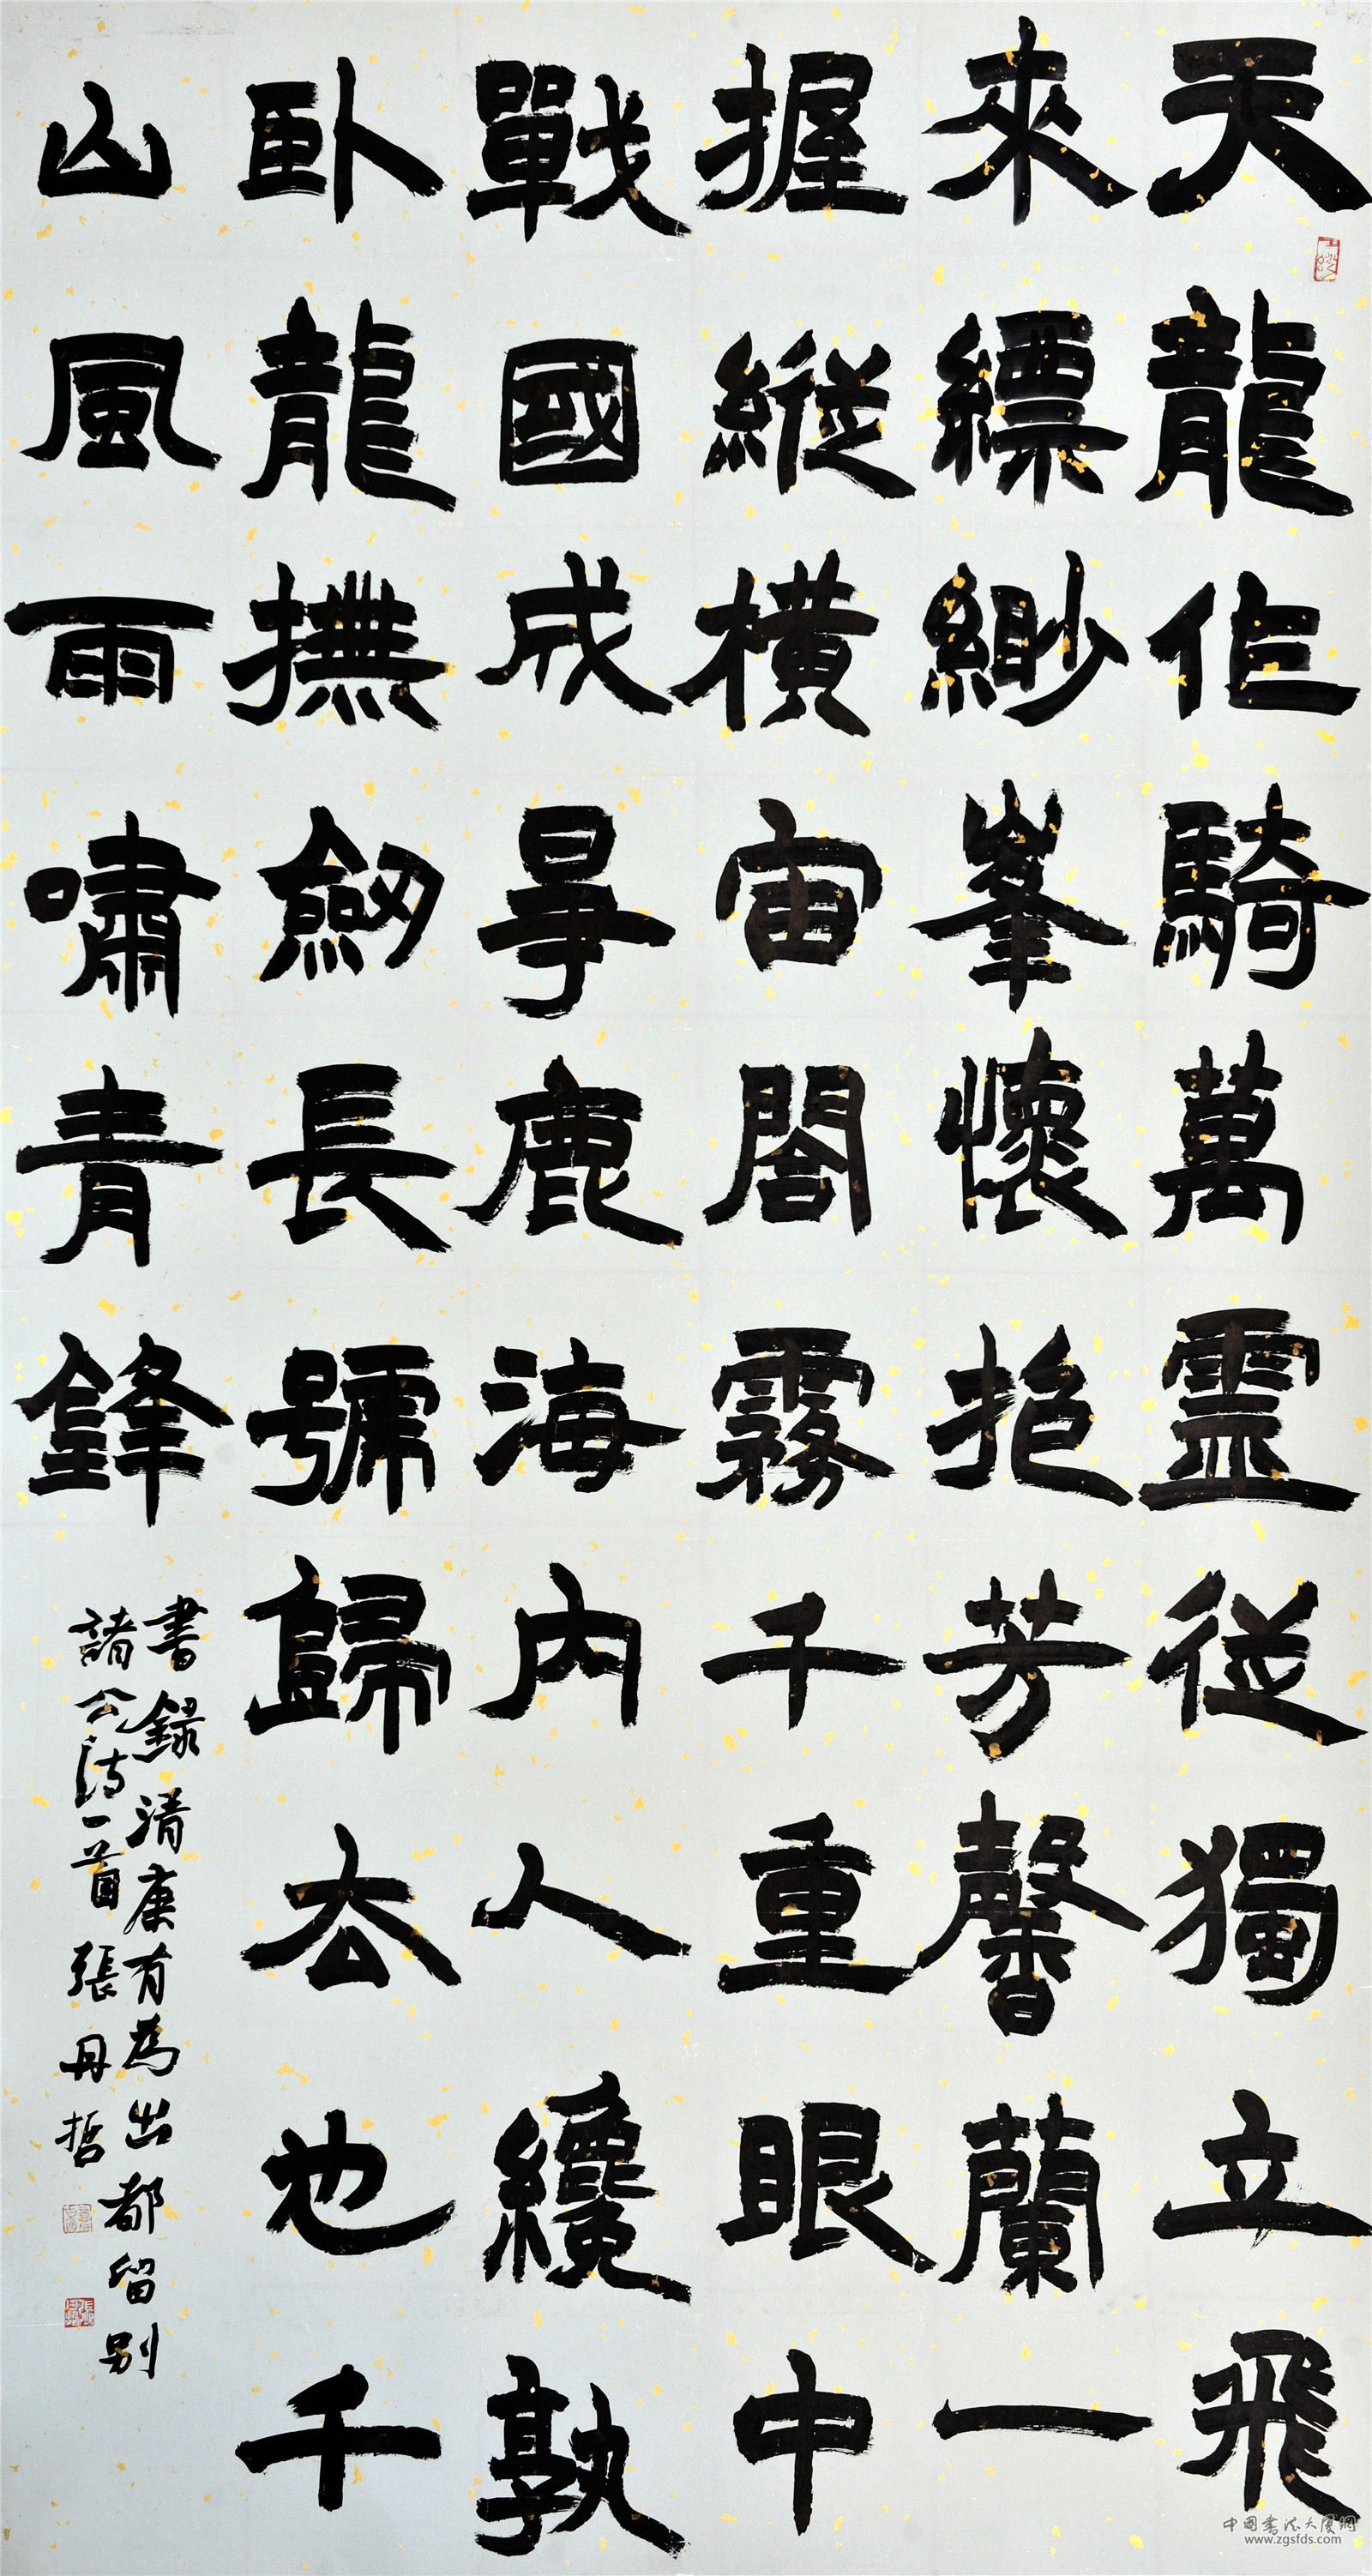 天龍作騎萬靈從獨立飛
來縹緲峯懷抱芳馨蘭一
握縱橫宙閤霧千重眼中
戰國成爭鹿海內人纔孰
臥龍撫劒長號歸去也千
山風雨嘯青鋒
書錄清康有為出都留別
諸公詩一首 張丹哲
中国書法大廈網
www.zgsfds.com